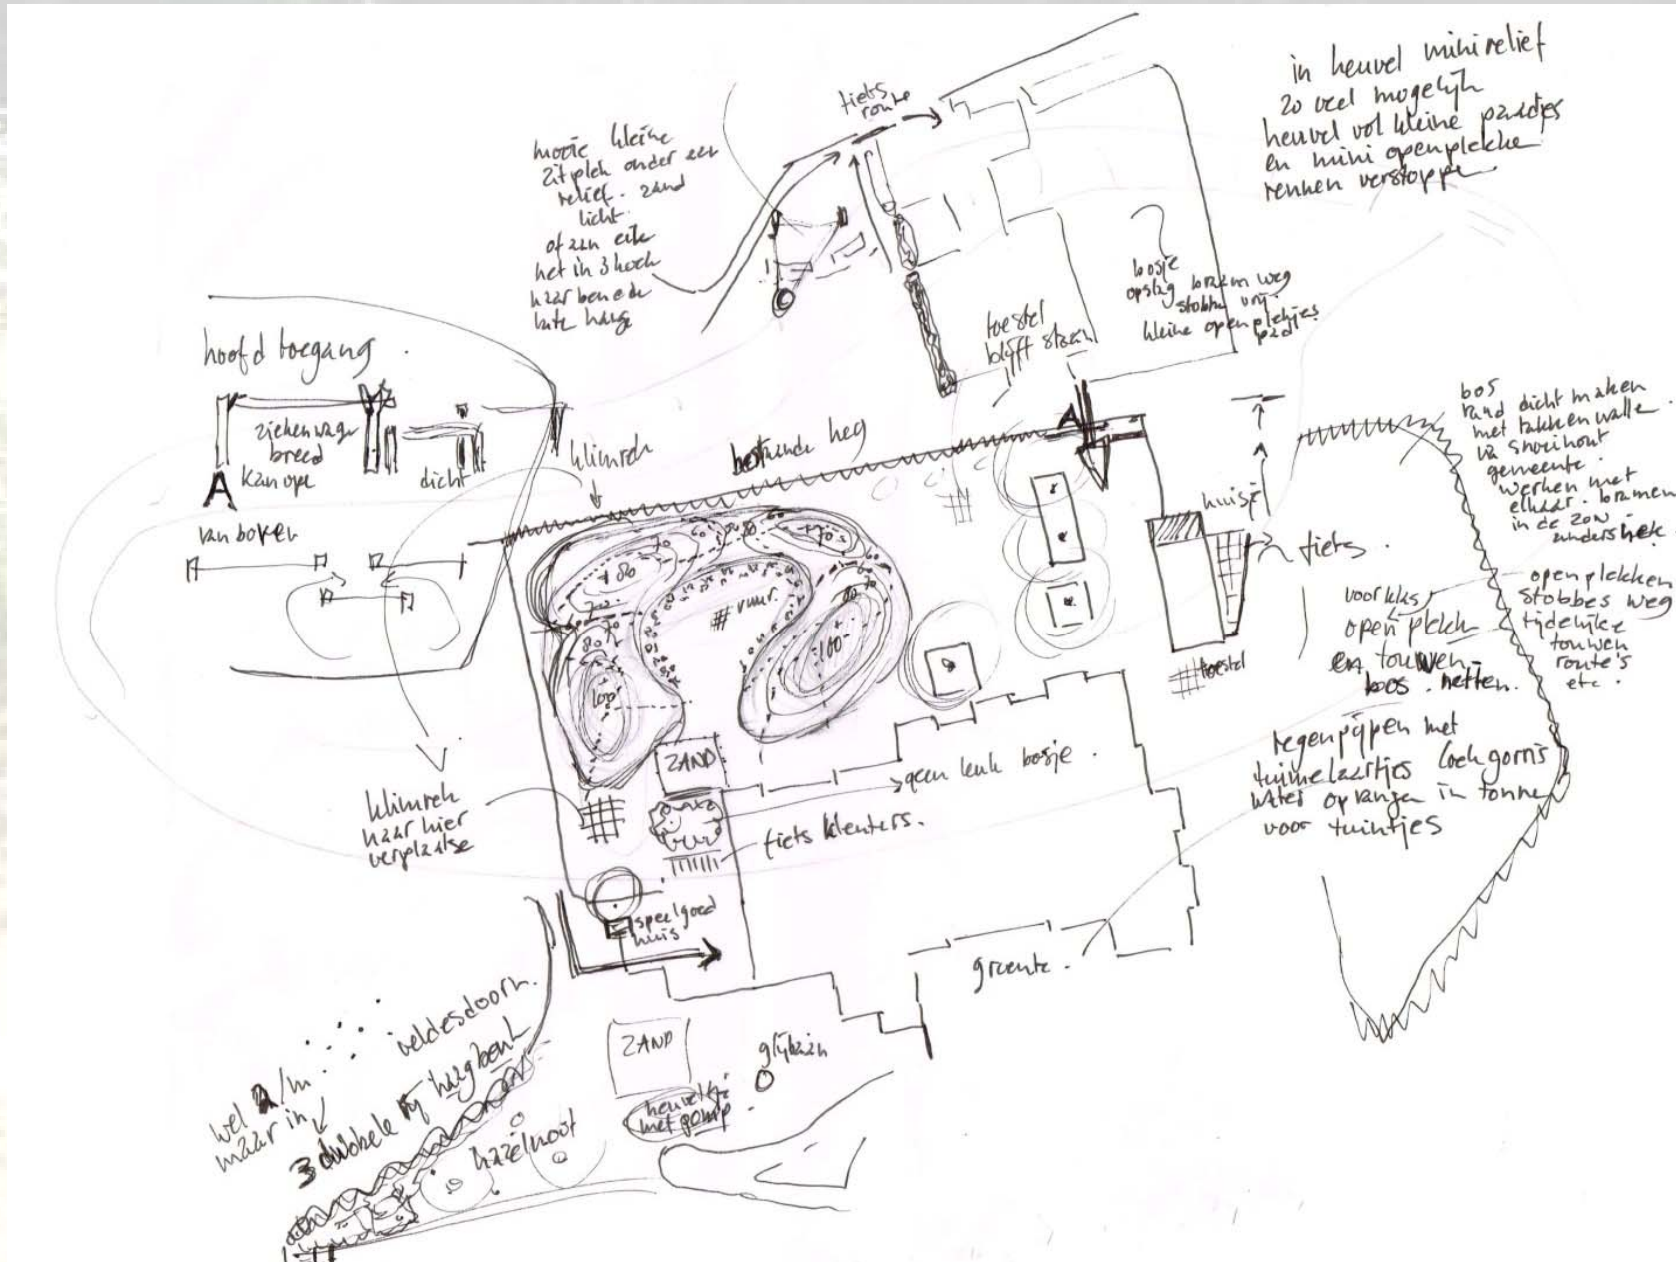 in heuvel mini relief
zo veel mogelijk
heuvel vol kleine paadjes
en mini openplekke
rennen verstoppe
fiets
route
mooie kleine
zitplek onder een
relief. zand
licht.
het in 3 hoek
naar benede
late hange
?
bosje
opslag bramen weg
stobbe vrij
kleine open plekjes
pad
toestel
blijft staan
hoofd toegang.
ziekenwage
breed
kan ope
dicht
A
van boven
klimrek
bestaande heg
A
huisje
fiets.
toestel
bos
rand dicht maken
met takkenwalle.
va snoeihout
gemeente.
werken met
elkaar. bramen
in de zon
anders hek.
open plekken
stobbes weg
tijdelijke
touwen
route's
etc.
voor klas
open plek
en touwen
bos. netten.
regenpijpen met
tuimelaartjes
water opvangen in tonne
voor tuintjes
80
80
70
70
80
vuur.
80
100
100
ZAND
geen leuk bosje.
fiets kleuters.
klimrek
naar hier
verplaatse
speelgoed
huis
groente.
ZAND
glijbaan
heuveltje
met pomp.
veldesdoorn.
haagbeuk
wel 2/m.
maar in
3 dubbele rij
hazelnoot